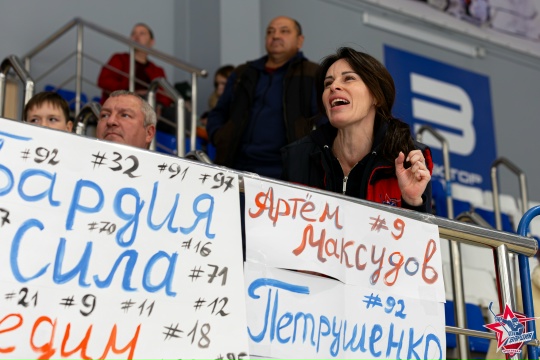 #92 #32 #91 #97
бардия
#70 #16
Сила #71
#21 #9 #11 #12
едим #18
#95
Артём #9
Максудов
#92
Петрушенко